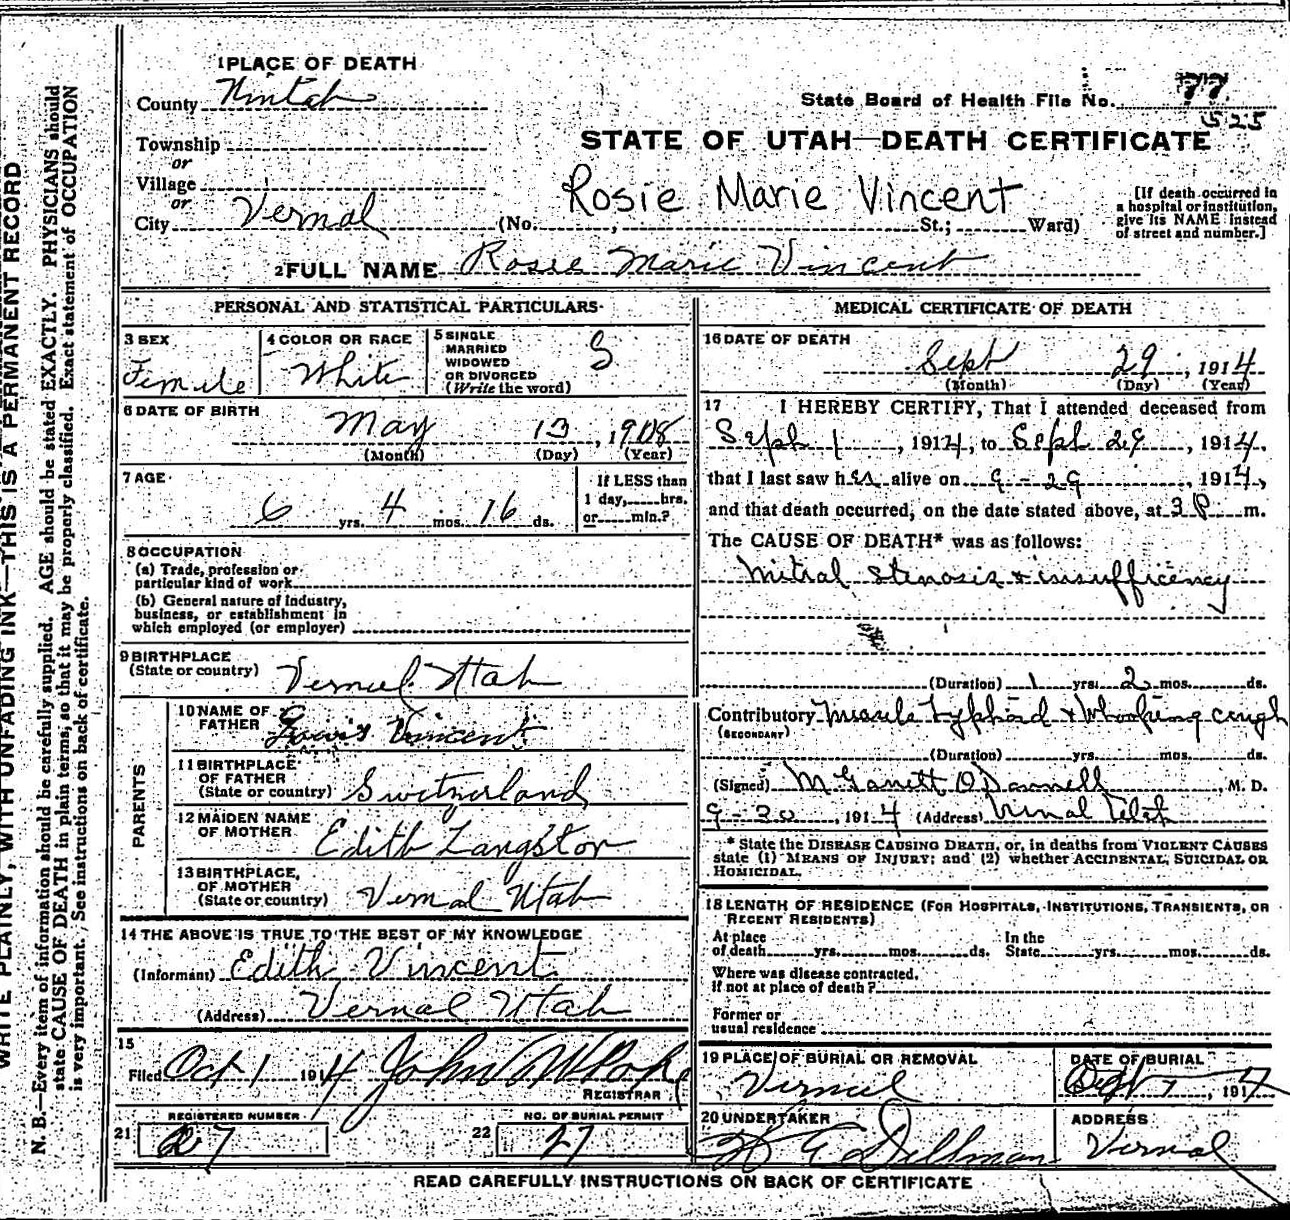 WRITE PLAINLY, WITH UNFADING INK—THIS IS A PERMANENT RECORD
N. B.—Every item of information should be carefully supplied. AGE should be stated EXACTLY. PHYSICIANS should
state CAUSE OF DEATH in plain terms, so that it may be properly classified. Exact statement of OCCUPATION
is very important. See instructions on back of certificate.
1 PLACE OF DEATH
County Uintah
State Board of Health File No. 77
525
Township
or
Village
or
City Vernal
STATE OF UTAH—DEATH CERTIFICATE
Rosie Marie Vincent
(No. , St.; Ward)
[If death occurred in
a hospital or institution,
give its NAME instead
of street and number.]
2 FULL NAME Rosie Marie Vincent
PERSONAL AND STATISTICAL PARTICULARS
3 SEX
Female
4 COLOR OR RACE
White
5 SINGLE
MARRIED
WIDOWED
OR DIVORCED
(Write the word)
S
6 DATE OF BIRTH
May 13, 1908
(Month) (Day) (Year)
7 AGE
6 yrs. 4 mos. 16 ds.
If LESS than
1 day, hrs.
or min.?
8 OCCUPATION
(a) Trade, profession or
particular kind of work
(b) General nature of industry,
business, or establishment in
which employed (or employer)
9 BIRTHPLACE
(State or country) Vernal Utah
PARENTS
10 NAME OF
FATHER Vincent
11 BIRTHPLACE
OF FATHER
(State or country) Switzerland
12 MAIDEN NAME
OF MOTHER Edith Langston
13 BIRTHPLACE,
OF MOTHER
(State or country) Vernal Utah
14 THE ABOVE IS TRUE TO THE BEST OF MY KNOWLEDGE
(Informant) Edith Vincent
(Address) Vernal Utah
15
Filed Oct 1 1914 John
REGISTRAR
21 REGISTERED NUMBER
27
22 NO. OF BURIAL PERMIT
27
MEDICAL CERTIFICATE OF DEATH
16 DATE OF DEATH
Sept 29, 1914
(Month) (Day) (Year)
17 I HEREBY CERTIFY, That I attended deceased from
Sept 1, 1914, to Sept 29, 1914,
that I last saw her alive on 9-29, 1914,
and that death occurred, on the date stated above, at 3 P m.
The CAUSE OF DEATH* was as follows:
Mitral Stenosis & insufficency
(Duration) 1 yrs. 2 mos. ds.
Contributory Measels Typhoid & Whooping cough
(SECONDARY)
(Duration) yrs. mos. ds.
(Signed) M Garrett O'Donnell, M. D.
9-30, 1914 (Address) Vernal Utah
* State the DISEASE CAUSING DEATH, or, in deaths from VIOLENT CAUSES
state (1) MEANS OF INJURY; and (2) whether ACCIDENTAL, SUICIDAL OR
HOMICIDAL.
18 LENGTH OF RESIDENCE (FOR HOSPITALS, INSTITUTIONS, TRANSIENTS, OR
RECENT RESIDENTS)
At place
of death yrs. mos. ds.
In the
State yrs. mos. ds.
Where was disease contracted,
if not at place of death?
Former or
usual residence
19 PLACE OF BURIAL OR REMOVAL
Vernal
DATE OF BURIAL
1, 1914
20 UNDERTAKER
Dillman
ADDRESS
Vernal
READ CAREFULLY INSTRUCTIONS ON BACK OF CERTIFICATE